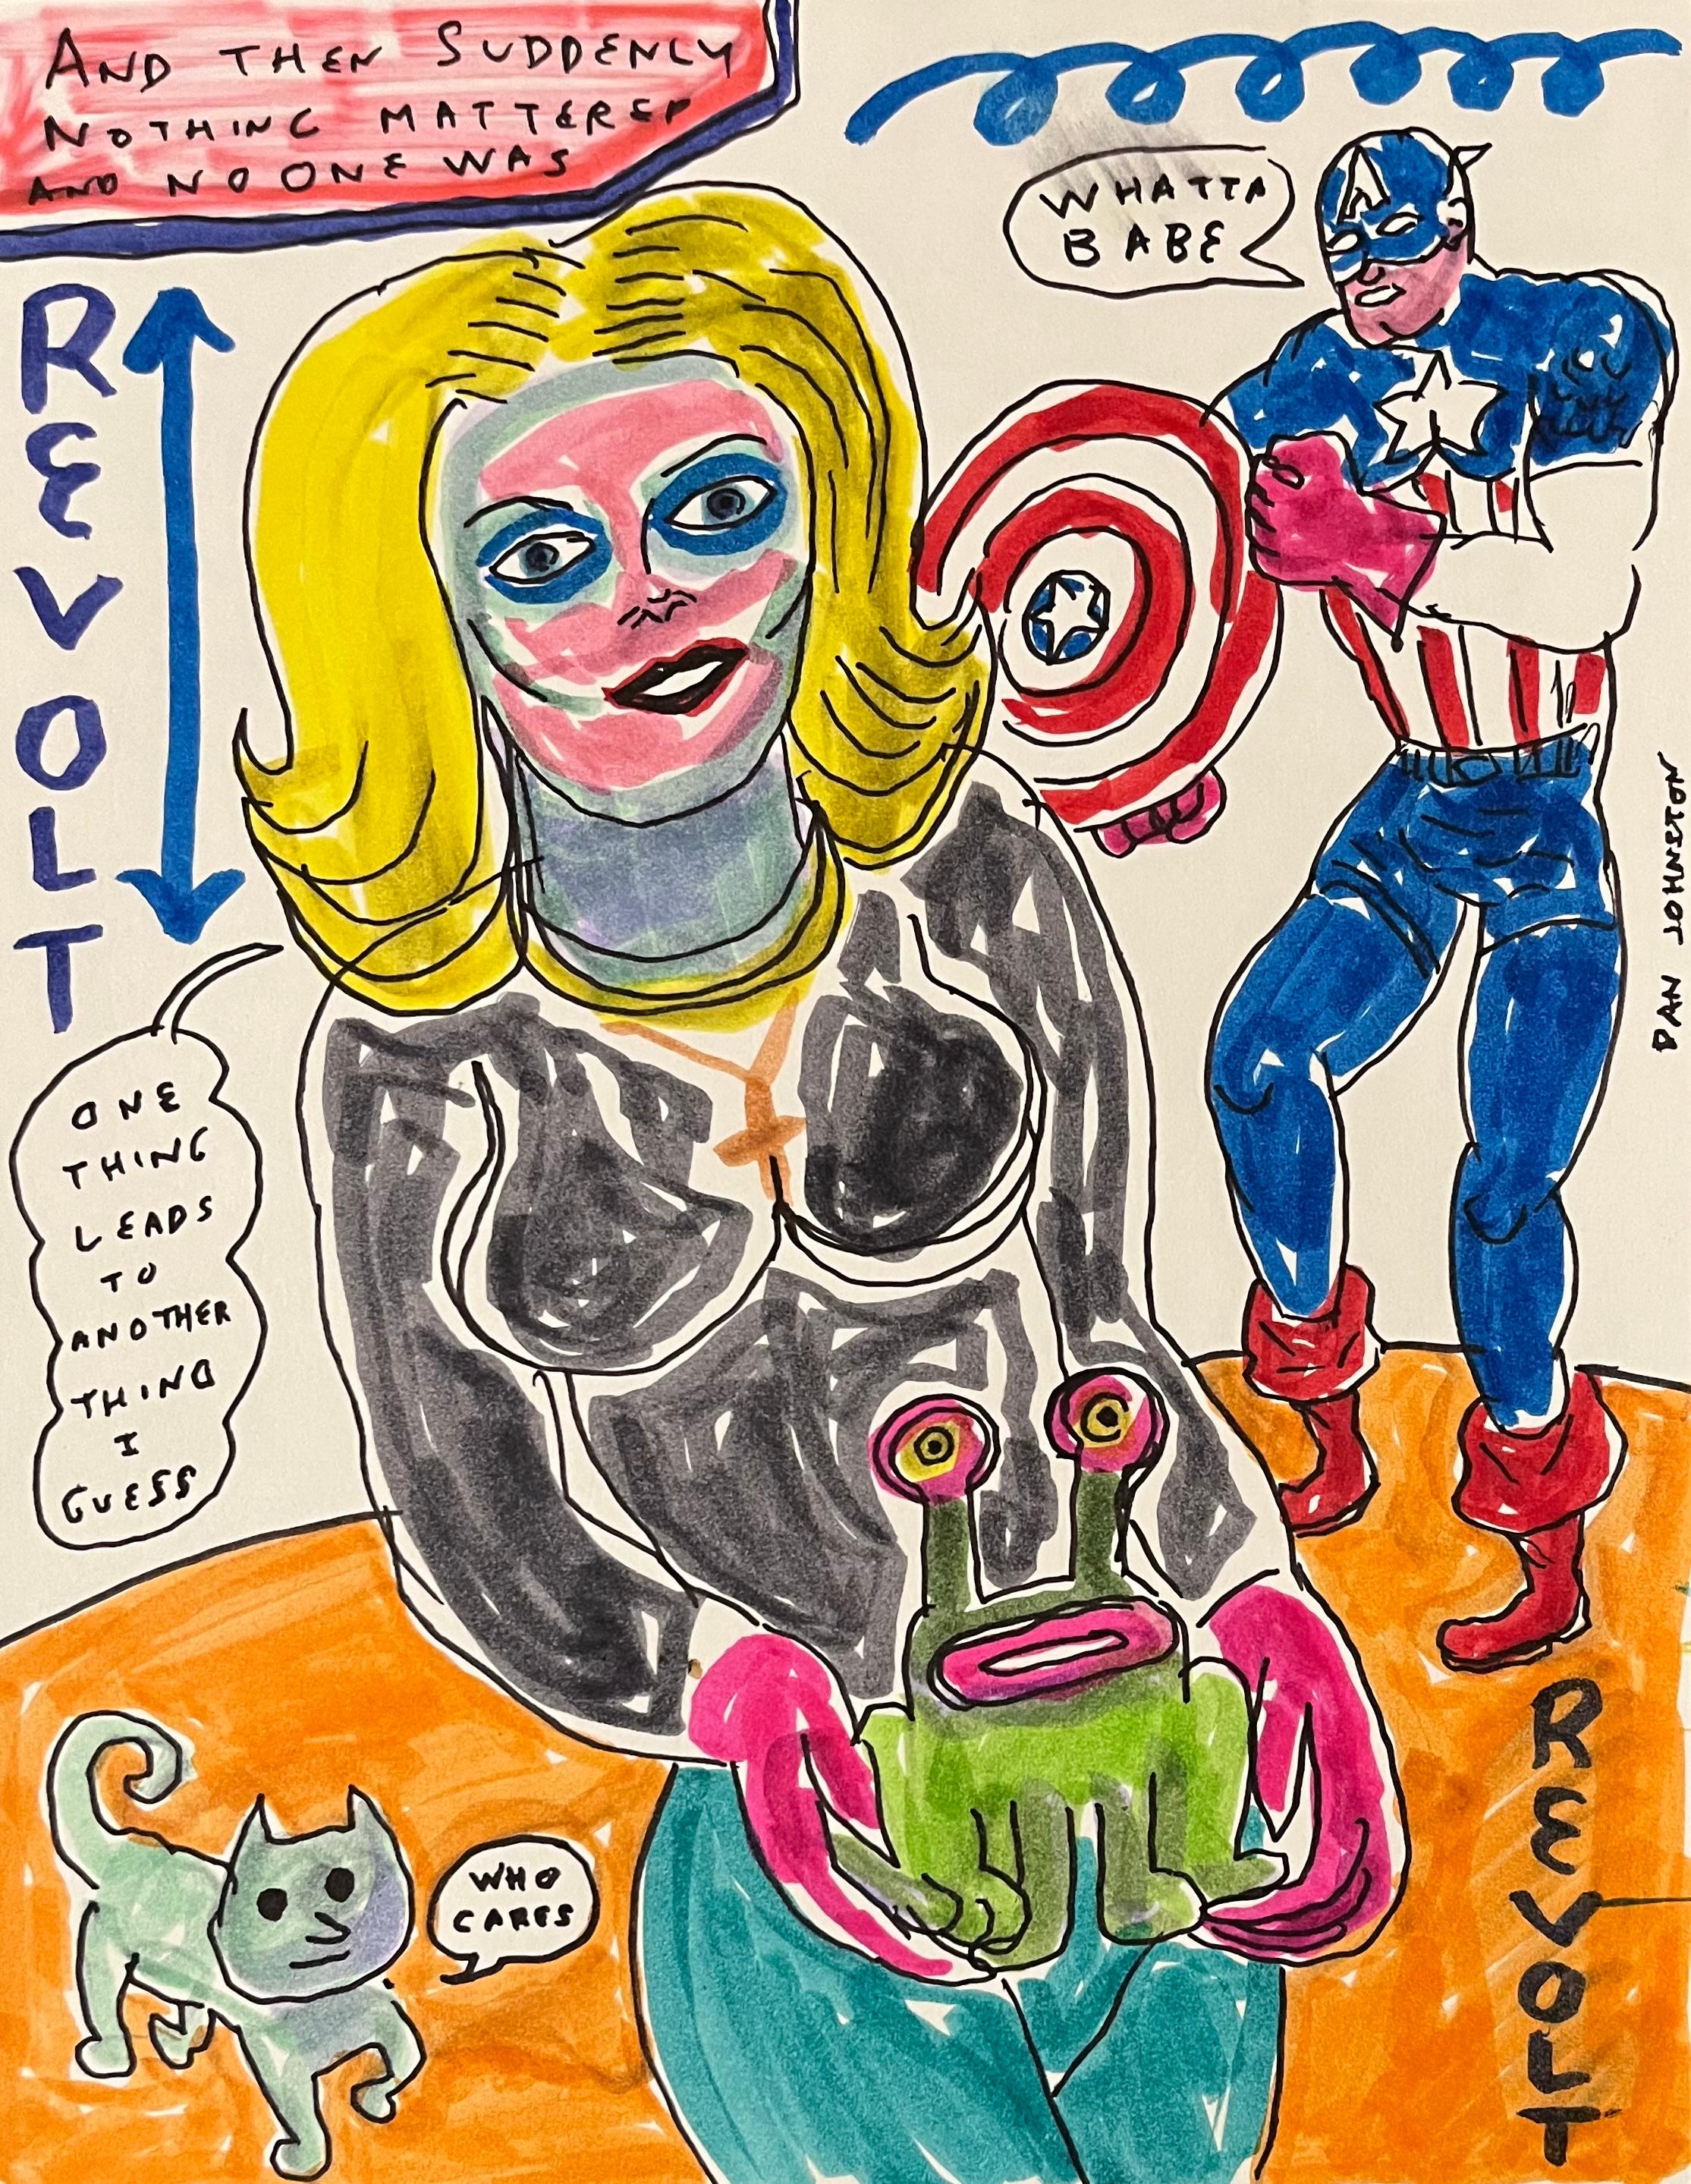 AND THEN SUDDENLY
NOTHING MATTERED
AND NO ONE WAS
WHATTA
BABE
A
REVOLT
DAN JOHNSTON
ONE
THING
LEADS
TO
ANOTHER
THING
I
GUESS
WHO
CARES
REVOLT